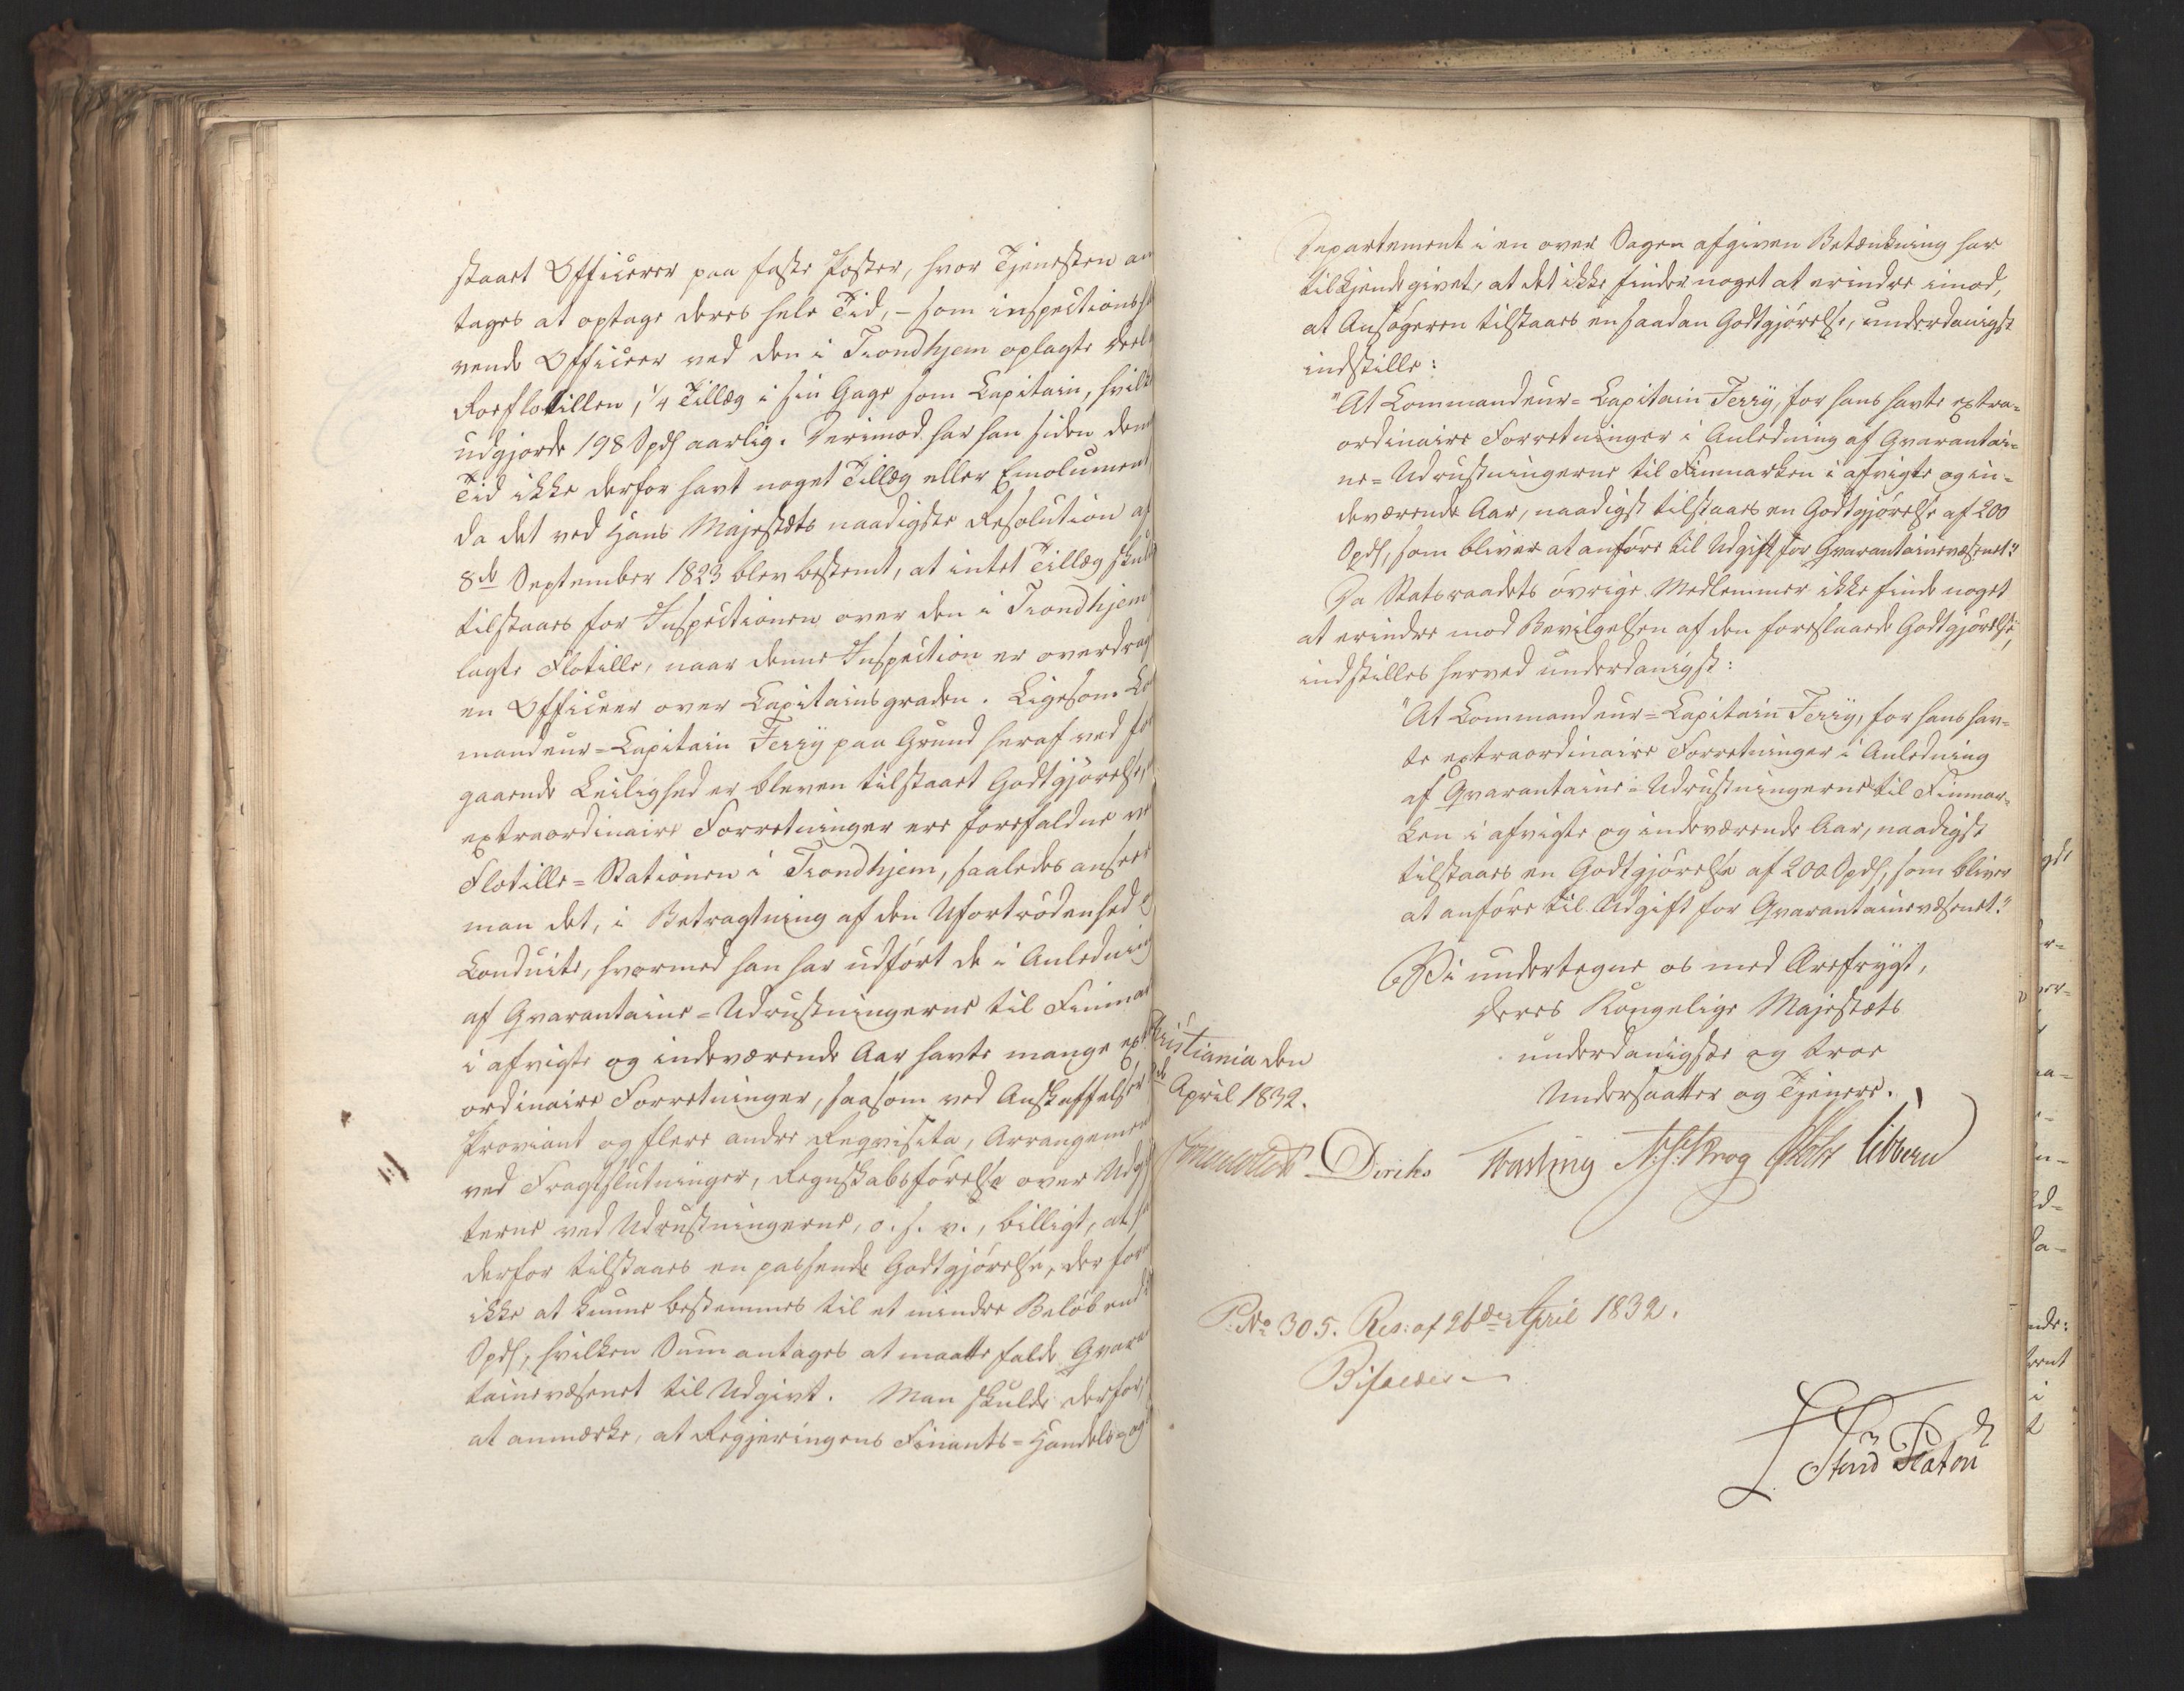 staaet Officerer paa faste Poster, hvor Tjenesten an
tages at optage deres hele Tid, – som inspections
vende Officeer ved den i Trondhjem oplagte Deel
Roeflotillen, 1/4 Tillæg i sin Gage som Capitain, hvilk
udgjorde 198 Spd aarlig. Derimod har han siden den
Tid ikke derfor havt noget Tillæg eller Emolument
da det ved Hans Majestæts naadigste Resolution af
8de September 1823 blev bestemt, at intet Tillæg skul
tilstaaes for Inspectionen over den i Trondhjem
lagte Flotille, naar denne Inspection er overdrag
en Officeer over Capitainsgraden. Ligesom Co
mandeur=Capitain Ferry paa Grund heraf ved for
gaaende Leilighed er bleven tilstaaet Godtgjørelse,
extraordinaire Forretninger ere forefaldne ve
Flotille=Stationen i Trondhjem, saaledes anseer
man det, i Betragtning af den Ufortrødenhed o
Conduite, hvormed han har udført de i Anledning
af Qvarantaine=Udrustningerne til Finmar
i afvigte og indeværende Aar havte mange ext
ordinaire Forretninger, saasom ved Anskaffelser
Proviant og flere andre Reqvisita, Arrangement
ved Fragtslutninger, Regnskabsførelse over Udgif
terne ved Udrustningerne, o. s. v., billigt, at ha
derfor tilstaaes en passende Godtgjørelse, der for
ikke at kunne bestemmes til et mindre Beløb end
Spd, hvilken Sum antages at maatte falde Qvaran
tainevæsenet til Udgivt. Man skulde derfor,
at anmærke, at Regjeringens Finants=Handels=og
Departement i en over Sagen afgiven Betænkning har
tilkjendegivet, at det ikke finder noget at erindre imod,
at Ansøgeren tilstaaes en saadan Godtgjørelse, underdanigst
indstille:
"At Commandeur=Capitain Ferry, for hans havte extra=
ordinaire Forretninger i Anledning af Qvarantai=
ne=Udrustningerne til Finmarken i afvigte og in=
deværende Aar, naadigst tilstaaes en Godtgjørelse af 200
Spd, som bliver at anføre til Udgift for Qvarantainevæsenet."
Da Statsraadets øvrige Medlemmer ikke finde noget
at erindre mod Bevilgelsen af den foreslaaede Godtgjørelse,
indstilles herved underdanigst:
"At Commandeur=Capitain Ferry, for hans hav=
te extraordinaire Forretninger i Anledning
af Qvarantaine=Udrustningerne til Finmar=
ken i afvigte og indeværende Aar, naadigst
tilstaaes en Godtgjørelse af 200 Spd, som bliver
at anføre til Udgift for Qvarantainevæsenet."
Vi undertegne os med Ærefrygt,
Deres Kongelige Majestæts
underdanigste og troe
Undersaatter og Tjenere.
ristiania den
April 1832.
Diriks Vogt Krog Holst Sibbern
P. No 305. Res: af 26de April 1832.
Bifaldes